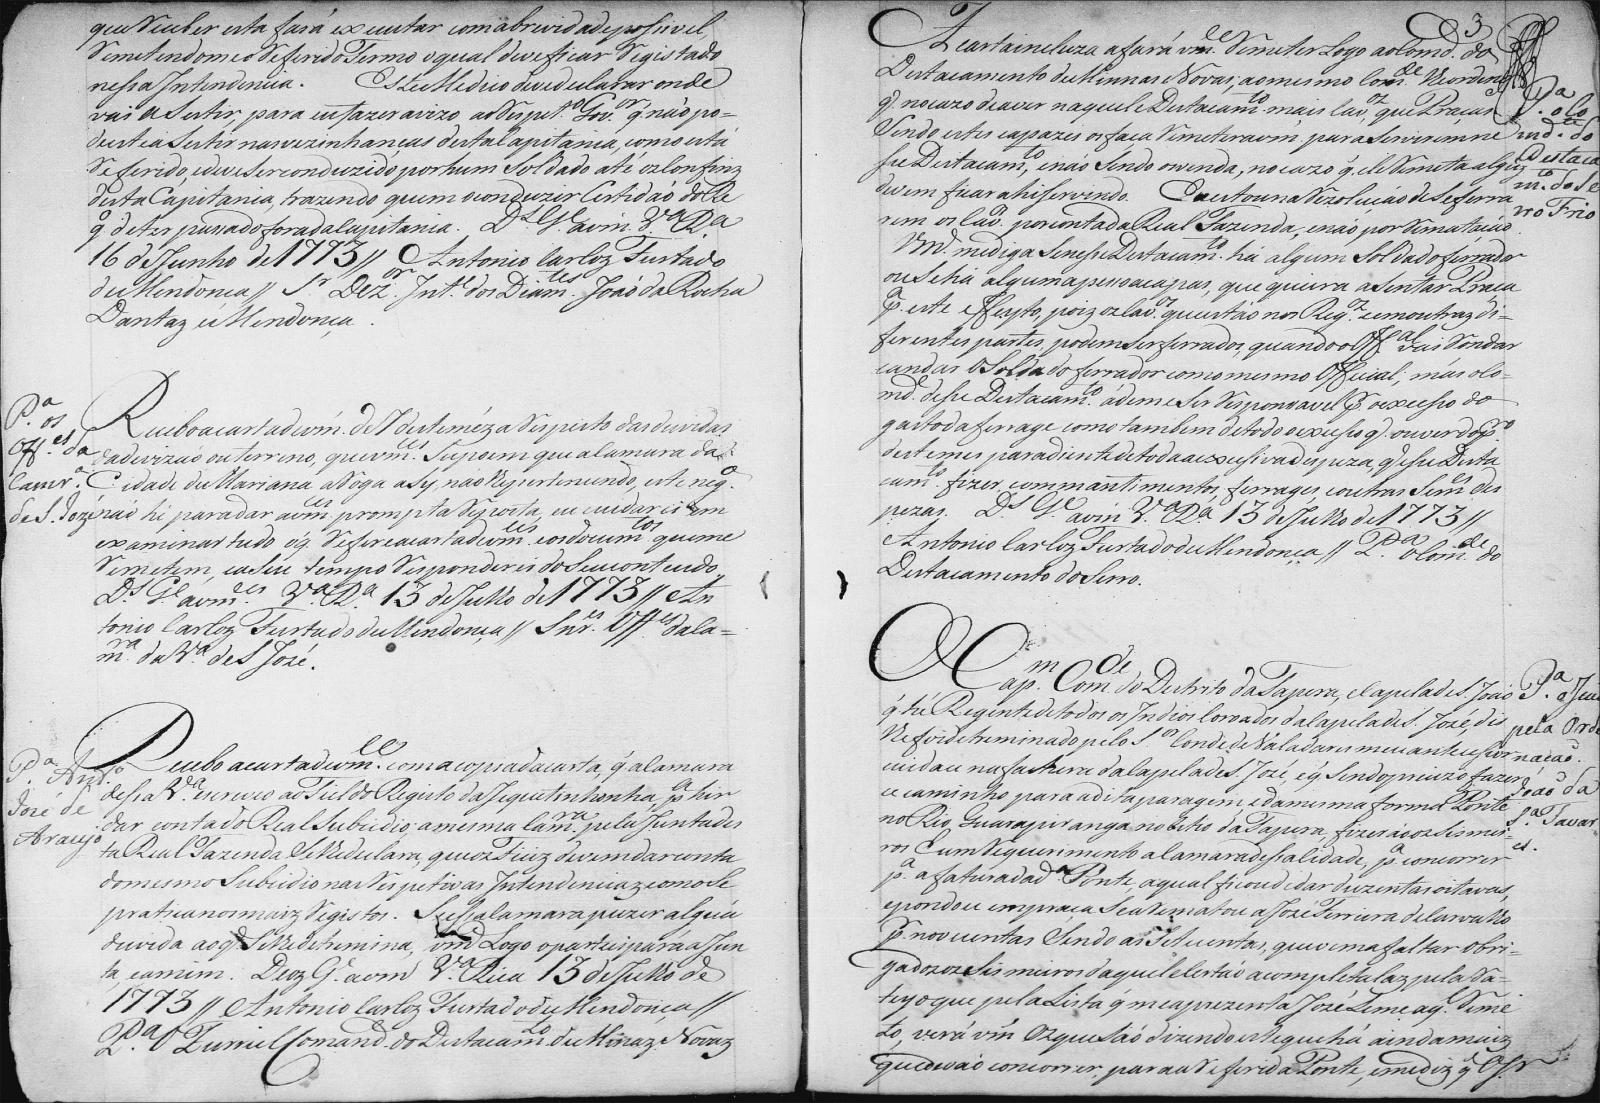 que receber esta fará executar com a brevidade possivel,
Remetendome o referido Termo o qual deve ficar Registado
nessa Intendencia. Este Medico deve declarar onde
vai aSestir, para eu fazer avizo ao Respet.º Gov.or q. não po=
de estiaSestir nas vezinhanças desta Capitania, como está
Referido, e deve ser conduzido por hum Soldado até os Confins
desta Capitania, trazendo quem o conduzir Certidão do Re
q. de ter passado fora da Capitania. D.s G.e a vm. V.a R.a
16 de Junho de 1773 // Antonio Carloz Furtado
de Mendonça // S.r Dez.or Int.e dos Diam.tes João da Rocha
Dantaz e Mendonça.
P.a os
Off.es da
Camr.a
de S. Jozé
Recebo a carta de vm. de 7 deste mez a Respeito das duvidas
da devizão ou terreno, que vm.ces Supoem que a Camara da
Cidade de Mariana aRoga a Sy, não Repertenendo, este neg.o
não he para dar a vm.ces prompta Reposta, eu cuidarei em
examinar tudo o q. Refere a carta de vm.ces e os docum.tos que me
Remetem, e a Seu tempo Responderei do Seu contendo,
D.s G.e a vm.ces V.a R.a 13 de Julho de 1773 // An
tonio Carloz Furtado de Mendonça // Snr.es Off.es da Ca=
m.ra da V.a de S. Jozé.
P.a Ant.o
José de
Araujo
Recebo a carta de vm.ce com a copia da carta, q. a Camara
dessa V.a escreveo ao Fiel do Registo da Jequetinhonha p.a hir
dar conta do Real Subsidio: a mesma Cam.ra pela Junta des
ta Real Fazenda Se lhe declara, que oz Fieiz devem dar conta
do mesmo Subsidio nas Respetivas Intendenciaz como Se
pratica nos maiz Registos. Se essa Camara puzer algũa
duvida ao q. Se lhe detremina, vm.ce Logo o participará a Jun
ta, e a mim. Deoz G.e a vm.ce V.a Rica 13 de Julho de
1773 // Antonio Carloz Furtado de Mendonça //
P.a o Furriel Comand.e do Destacam.to de Minaz Novaz
3
A carta incluza a fará vm.ce Remeter Logo ao Com.de do
Destacamento de Minnas Novas; ao mesmo Com.de
q. no cazo de aver naquele Destacam.to mais Cav.oz, que Praças
Sendo estes capazes os faça Remeter a vm. para Servirem ne
sse Destacam.to, e não Sendo o venda, no cazo q. ele Remeta alguz
devem ficar ahi servindo. Eu estou na Rezolução de Se ferra
rem os Cav.os por conta da Real Fazenda, e não por Rematação
Vm.ce me diga Se nesse Destacam.to há algum Soldado ferrador
ou Se há alguma pessoa capas, que queira aSentar Praça
p.a este effeyto, pois oz Cav.oz que estão nos Reg.oz e em outraz di=
ferentes partes, podem Ser ferrados, quando o Off.al vai Rondar
Soldado ferrador com o mesmo Official; más o Co=
md.e desse Destacam.to á de me Ser Responsavel p.lo excesso do
gasto da ferrage como tambem de todo o excesso q. ouver do p.o
destemes para diente de toda a excessiva despeza, q. esse Desta
cam.to fizer, com mantimentos, ferrages, e outras Sem.es des
pezas. D.s G.e a vm. V.a R.a 13 de Julho de 1773 //
Antonio Carloz Furtado de Mendonça // P.a o Com.de do
Destacamento do Serro.
P.a o Co
md.te do
Destaca
m.to do Se
rro Frio
O Cap.m Com.de do Destrito da Tapera, e Capela de S. João
q. hé Regente de todos os Indios Coroados da Capela de S. Jozé, diz
lhe foi detreminado pelo S.or Conde de Valadares meu antecessor
cuidace na factura da Capela de S. Jozé, e q. Sendo precizo fazer
ce caminho para a dita paragem, e da mesma forma Ponte
no Rio Guarapiranga no Citio da Tapera, fizerão os Sesmer=
ros hum Requerimento a Camara dessa Cidade, p.a concorrer
p.a a fatura da d.a Ponte, a qual ficou de dar duzentas oitavas,
e pondo ce em praça Se aRematou a Jozé Ferreira de Carvalho
p.r novecentas Sendo as Setecentas, que vem a faltar obri=
gados oz Sesmeiros daquele Certão a completalaz pela Ra=
teyo que pela Lista q. me aprezenta Jozé Leme a q.l Reme
to, verá vm.ce oz que São dizendo este que há ainda maiz
que devão concorrer, para a Referida Ponte, e me diz q. o S.r
P.a o Juiz
pela Orde
nação
João da
S.a Tavar
es.